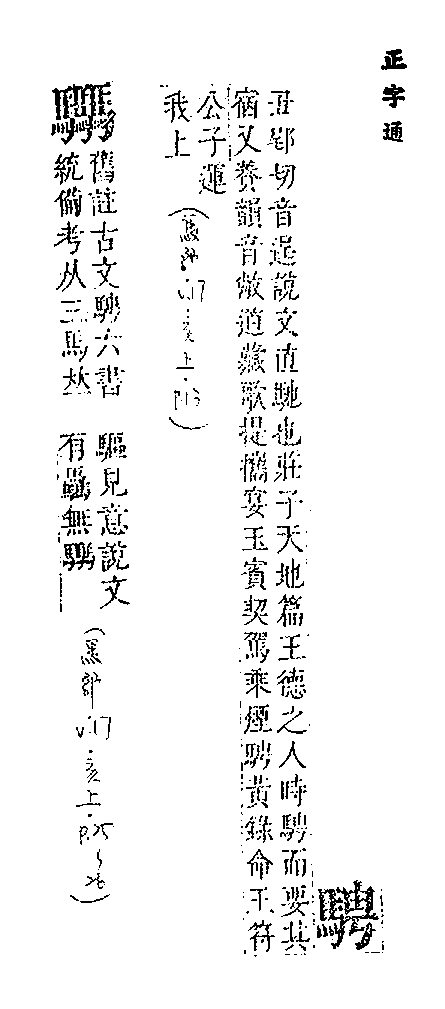 正字通
騁
丑郢切音逞說文直馳也莊子天地篇王德之人時騁而要其
宿又養韻音敞道藏歌提攜宴玉賓契駕乘煙騁黃錄命玉符
公子運
我上
(馬部.V.17.亥上.P.13)
舊註古文騁六書
統備考从三馬
驅見意說文
有驫無
V.17.亥上.P.25
26)